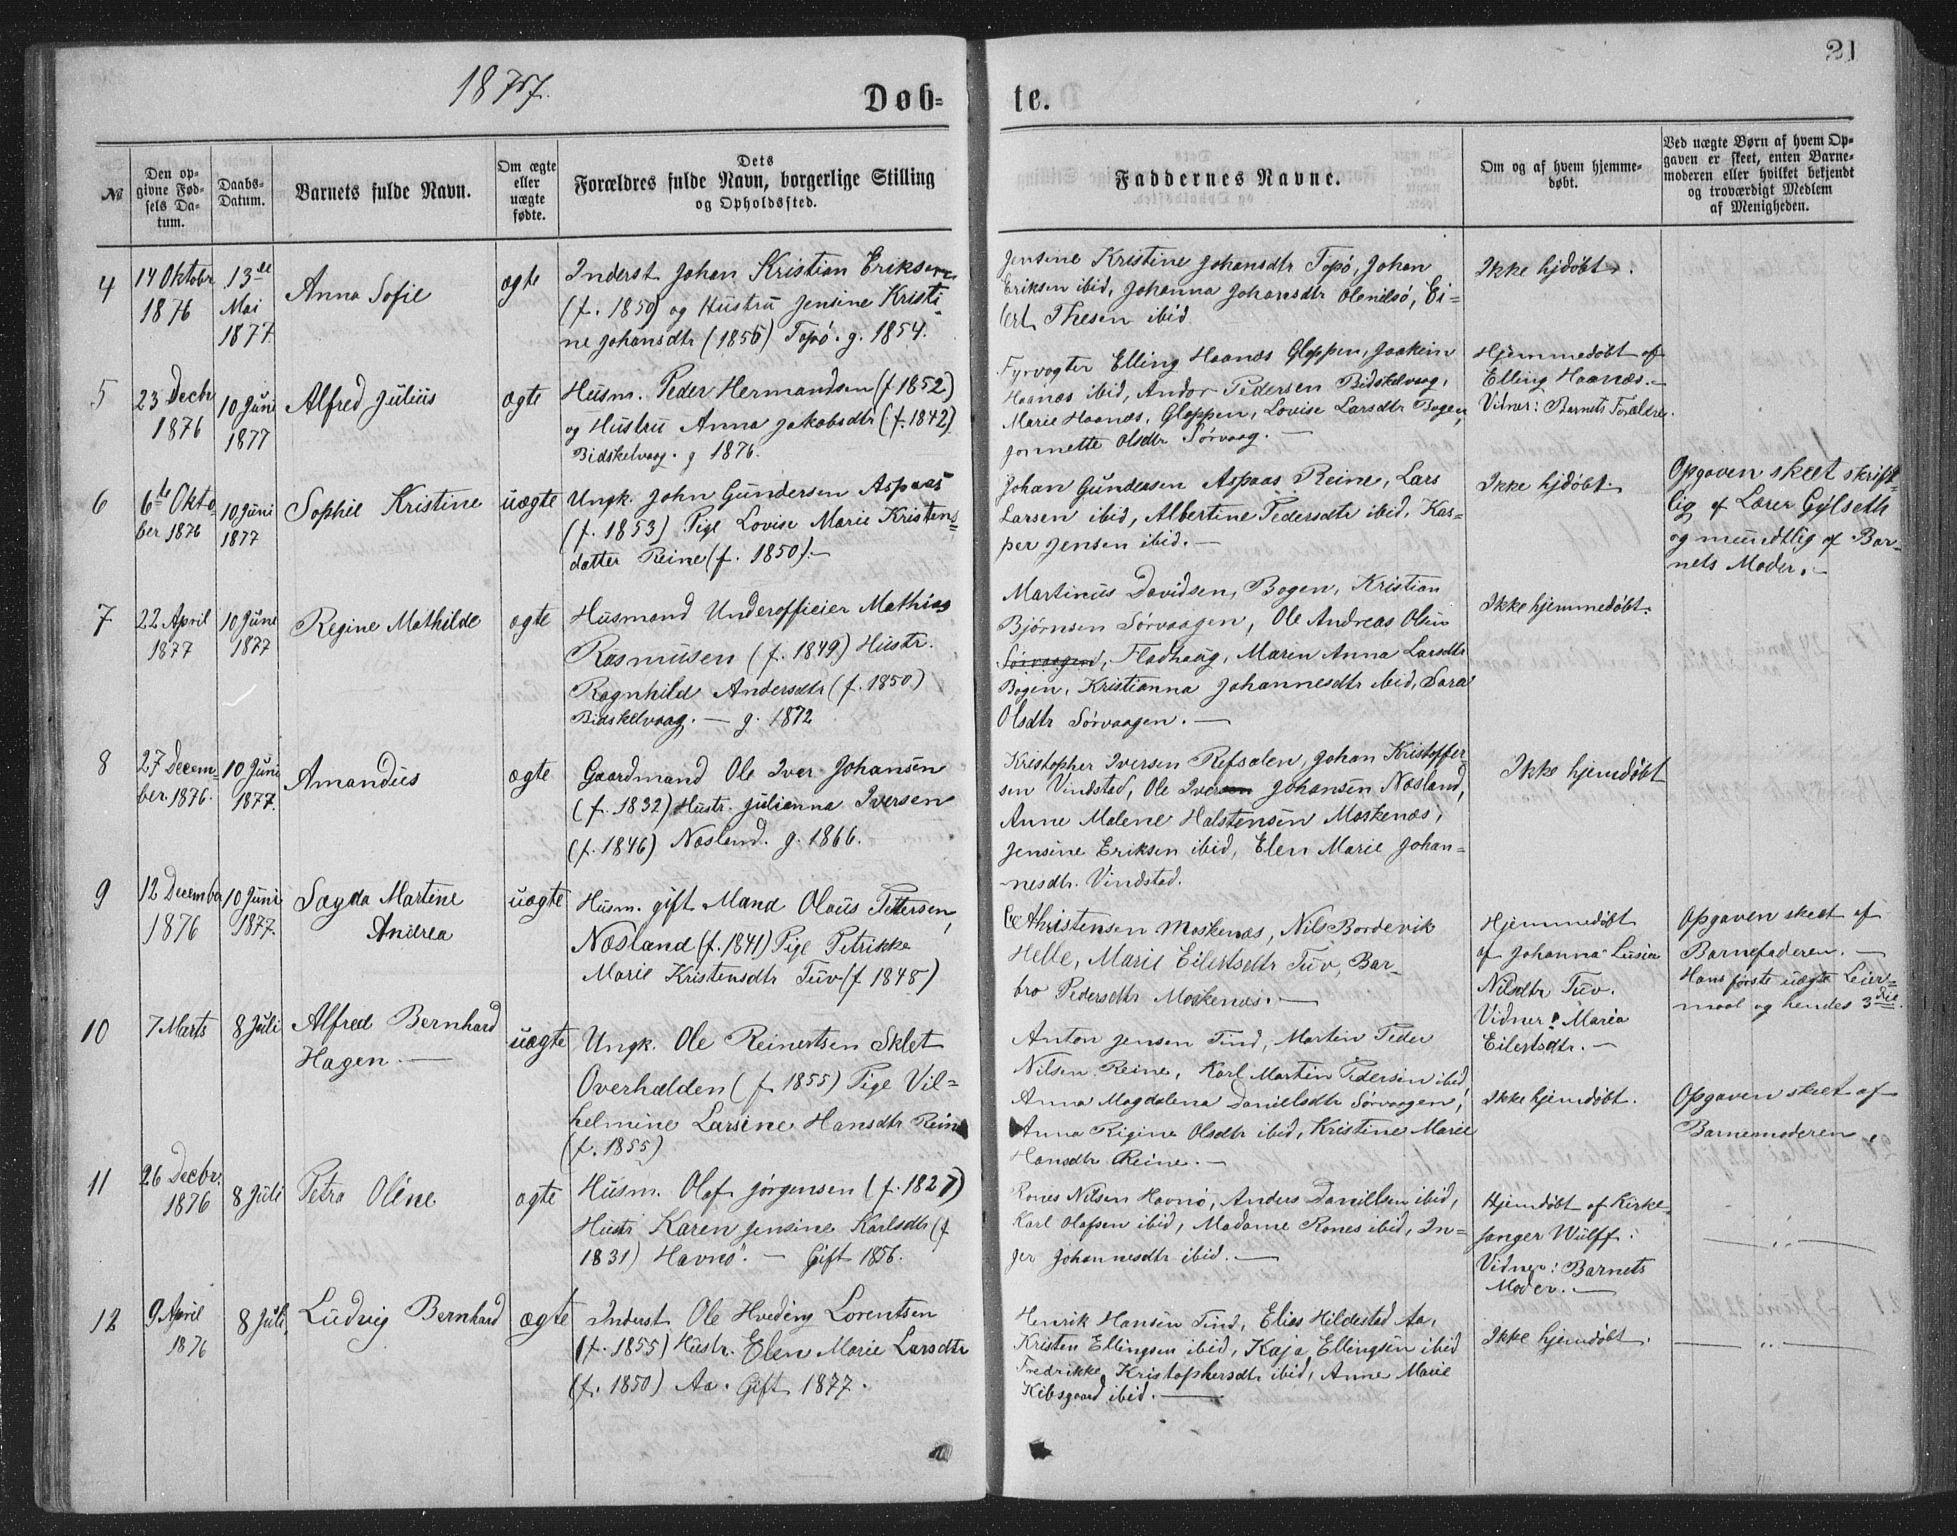 1877.
Døb-
te.
21
№
Den op-
givne Fød-
sels Da-
tum.
Daabs-
Datum.
Barnets fulde Navn.
Om ægte
eller
uægte
fødte.
Dets
Forældres fulde Navn, borgerlige Stilling
og Opholdssted.
Faddernes Navne.
Om og af hvem hjemme-
døbt.
Ved uægte Børn af hvem Op-
gaven er skeet, enten Barne-
moderen eller hvilket bekjendt
og troværdigt Medlem
af Menigheden.
4
14 Oktobr
1876
13de
Mai
1877.
Anna Sofie
ægte
Inderst Johan Kristian Eriksen
(f. 1850) og Hustru Jensine Kristi-
ne Johansdtr (1856) Topø. g. 1854.
Jensine Kristine Johansdtr Topø, Johan
Eriksen ibid, Johanna Johansdtr Olenilsø, Ei-
lert Thesen ibid
Ikke hjdøbt.
5
23 Decb
1876
10 Juni
1877
Alfred Julius
ægte
Husm. Peder Hermandsen (f. 1852)
og Hustru Anna Jakobsdtr (f. 1842)
Bidskelvaag. g 1876.
Fyrvogter Elling Haanæs Gloppen, Joakim
Haanæs ibid, Andor Pedersen Bidskelvaag,
Marie Haanæs, Gloppen, Lovise Larsdtr Bogen,
Jonnette Olsdtr Sørvaag. —
Hjemmedøbt af
Elling Haanæs. —
Vidner: Barnets Forældre.
6
6te Okto-
ber 1876
10 Juni
1877
Sophie Kristine
uægte
Ungk. John Gundersen Aspaas
(f. 1853) Pige Lovise Marie Kristens-
datter Reine (f. 1850). —
Johan Gundersen Aspaas Reine, Lars
Larsen ibid, Albertine Pedersdtr ibid, Kas-
per Jensen ibid. —
Ikke hjdøbt.
Opgaven skeet skrift-
lig af Lærer Gylseth
og mundtlig af Bar-
nets Moder. —
7
22 April
1877
10 Juni
1877
Regine Mathilde
ægte
Husmand Underofficier Mathias
Rasmusen (f. 1849) Hustr.
Ragnhild Andersdtr (f. 1850)
Bidskelvaag. — g. 1872
Martinus Davidsen, Bogen, Kristian
Bjørnsen Sørvaagen, Ole Andreas Olsen
Sørvaagen, Fladhaug, Marin Anna Larsdtr
Bogen, Kristianna Johannesdtr ibid, Sara
Olsdtr Sørvaagen. —
Ikke hjemmedøbt.
8
27 Decem-
ber. 1876.
10 Juni
1877.
Amandus
ægte
Gaardmand Ole Iver Johansen
(f. 1832) Hustr. Julianna Iversen
(f. 1846) Næsland. g. 1866.
Kristopher Iversen Refsalen, Johan Kristoffer-
sen Vindstad, Ole Iversen Johansen Næsland,
Anne Malene Halstensen Moskenæs,
Jensine Eriksen ibid, Elen Marie Johan-
nesdtr. Vindstad.
Ikke hjemdøbt
9
12 December
1876
10 Juni
1877.
Sægda Martine
Andrea
uægte
Husm. gift Mand Olaus Pettersen,
Næsland (f. 1841) Pige Petrikke
Marie Kristensdtr Tuv (f 1848)
Christensen Moskenæs, Nils Bordevik
Helle, Marie Eilertsdtr Tuv, Bar-
bro Pedersdtr Moskenæs. —
Hjemmedøbt
af Johanna Lusia
Nilsdtr Tuv.
Vidner: Maria
Eilertsdtr. —
Opgaven skeet af
Barnefaderen. —
Hans første uægte Leier-
maal og hendes 3die.
10
7 Marts
8 Juli
Alfred Bernhard
Hagen. —
uægte
Ungk. Ole Reinertsen Sklet
Overhalden (f 1855) Pige Vil-
helmine Larsine Hansdtr Reine
(f. 1855)
Anton Jensen Tind, Martin Peder
Nilsen Reine, Karl Martin Pedersen ibid,
Anna Magdalena Danielsdtr Sørvaagen,
Anna Rigine Olsdtr ibid, Kristine Marie
Hansdtr Reine. —
Ikke hjemdøbt.
Opgaven skeet af
Barnemoderen.
11
26 Decbr.
1876
8 Juli
Petra Oline
ægte
Husm. Olaf Jørgensen (f. 1827)
Hustr Karen Jensine Karlsdtr (f
1831) Havnø. — Gift 1856.
Rones Nilsen Havnø, Anders Danielsen ibid,
Karl Olafsen ibid, Madame Rones ibid, In-
ger Johannesdtr ibid. —
Hjemdøbt af Kirke-
sanger Wulff.
Vidner: Barnets
Moder. —
— „ —
12
9 April
1876
8 Juli,
Ludvig Bernhard
ægte
Inderst Ole Hveding Lorentsen
(f. 1855) Hustr. Elen Marie Larsdtr
(f. 1850) Aa. Gift 1877.
Henrik Hansen Tind, Elias Hildestad Aa,
Kristen Ellingsen ibid, Kaja Ellingsen ibid
Fredrikke Kristophersdtr ibid, Anne Marie
Kibsgaard ibid. —
Ikke hjemdøbt.
— „ —